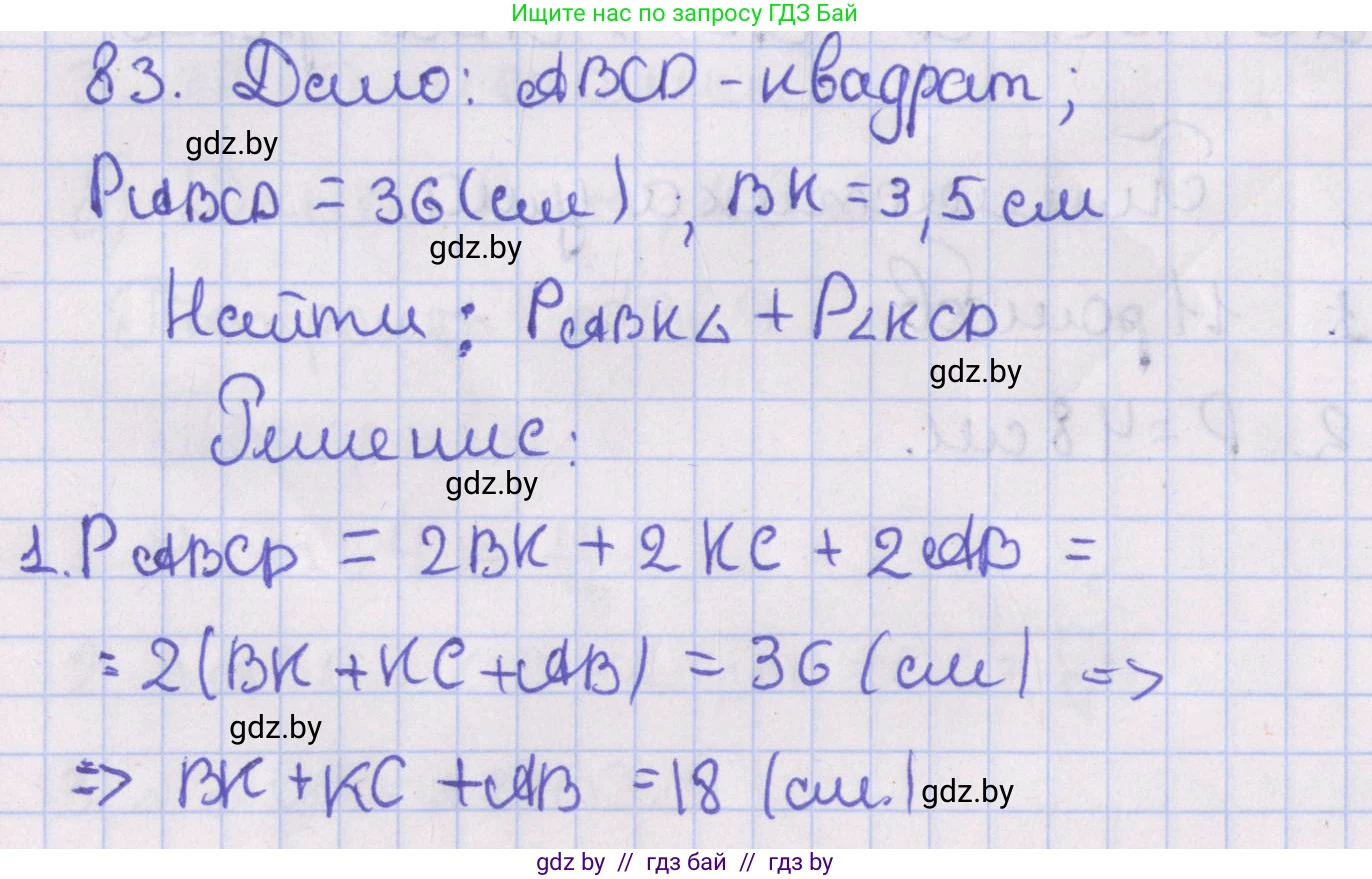 Ищите нас по запросу ГДЗ Бай
83. Дано: ABCD - квадрат;
gdz.by
PABCD = 36 (см) ; BK = 3,5 см
gdz.by
Найти: PABK∠ + P∠KCD
gdz.by
Решение:
gdz.by
1. PABCD = 2BK + 2KC + 2AB =
= 2(BK + KC + AB) = 36 (см) =>
gdz.by
=> BK + KC + AB = 18 (см.)
gdz.by
gdz by // гдз бай // гдз by